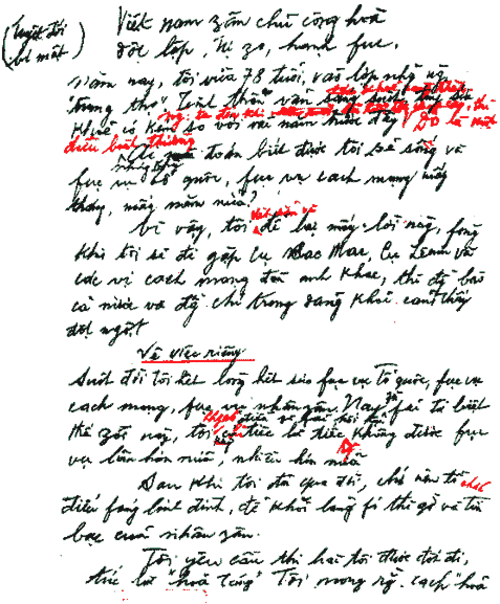 (Tuyệt đối
bí mật)
Việt nam zân chủ cộng hoà
độc lập, tự zo, hạnh fúc.
Năm nay, tôi vừa 78 tuổi, vào lớp những người
"trung thọ". Tinh thần vẫn
khoẻ có kém so với vài năm trước đây. Đó là một
điều bình thường.
Nhưng ai mà đoán biết được tôi sẽ sống và
fục vụ tổ quốc, fục vụ cách mạng mấy
tháng, mấy năm nữa?
Vì vậy, tôi để lại mấy lời này, fòng
khi tôi sẽ đi gặp cụ Các Mác, cụ Lênin và
các vị cách mạng đàn anh khác, thì đồng bào
cả nước và đồng chí trong đảng khỏi cảm thấy
đột ngột.
Về việc riêng:
Suốt đời tôi hết lòng hết sức fục vụ Tổ quốc, fục vụ
cách mạng, fục vụ nhân zân. Nay zù fải từ biệt
thế zới này, tôi
chỉ tiếc là tiếc không được fục
vụ lâu hơn nữa, nhiều hơn nữa
Sau khi tôi đã qua đời, chớ nên tổ chức
điếu fúng linh đình, để khỏi lãng fí thì zờ và tiền
bạc của nhân zân.
Tôi yêu cầu thi hài tôi được đốt đi,
tức là "hoả táng". Tôi mong rằng cách "hoả